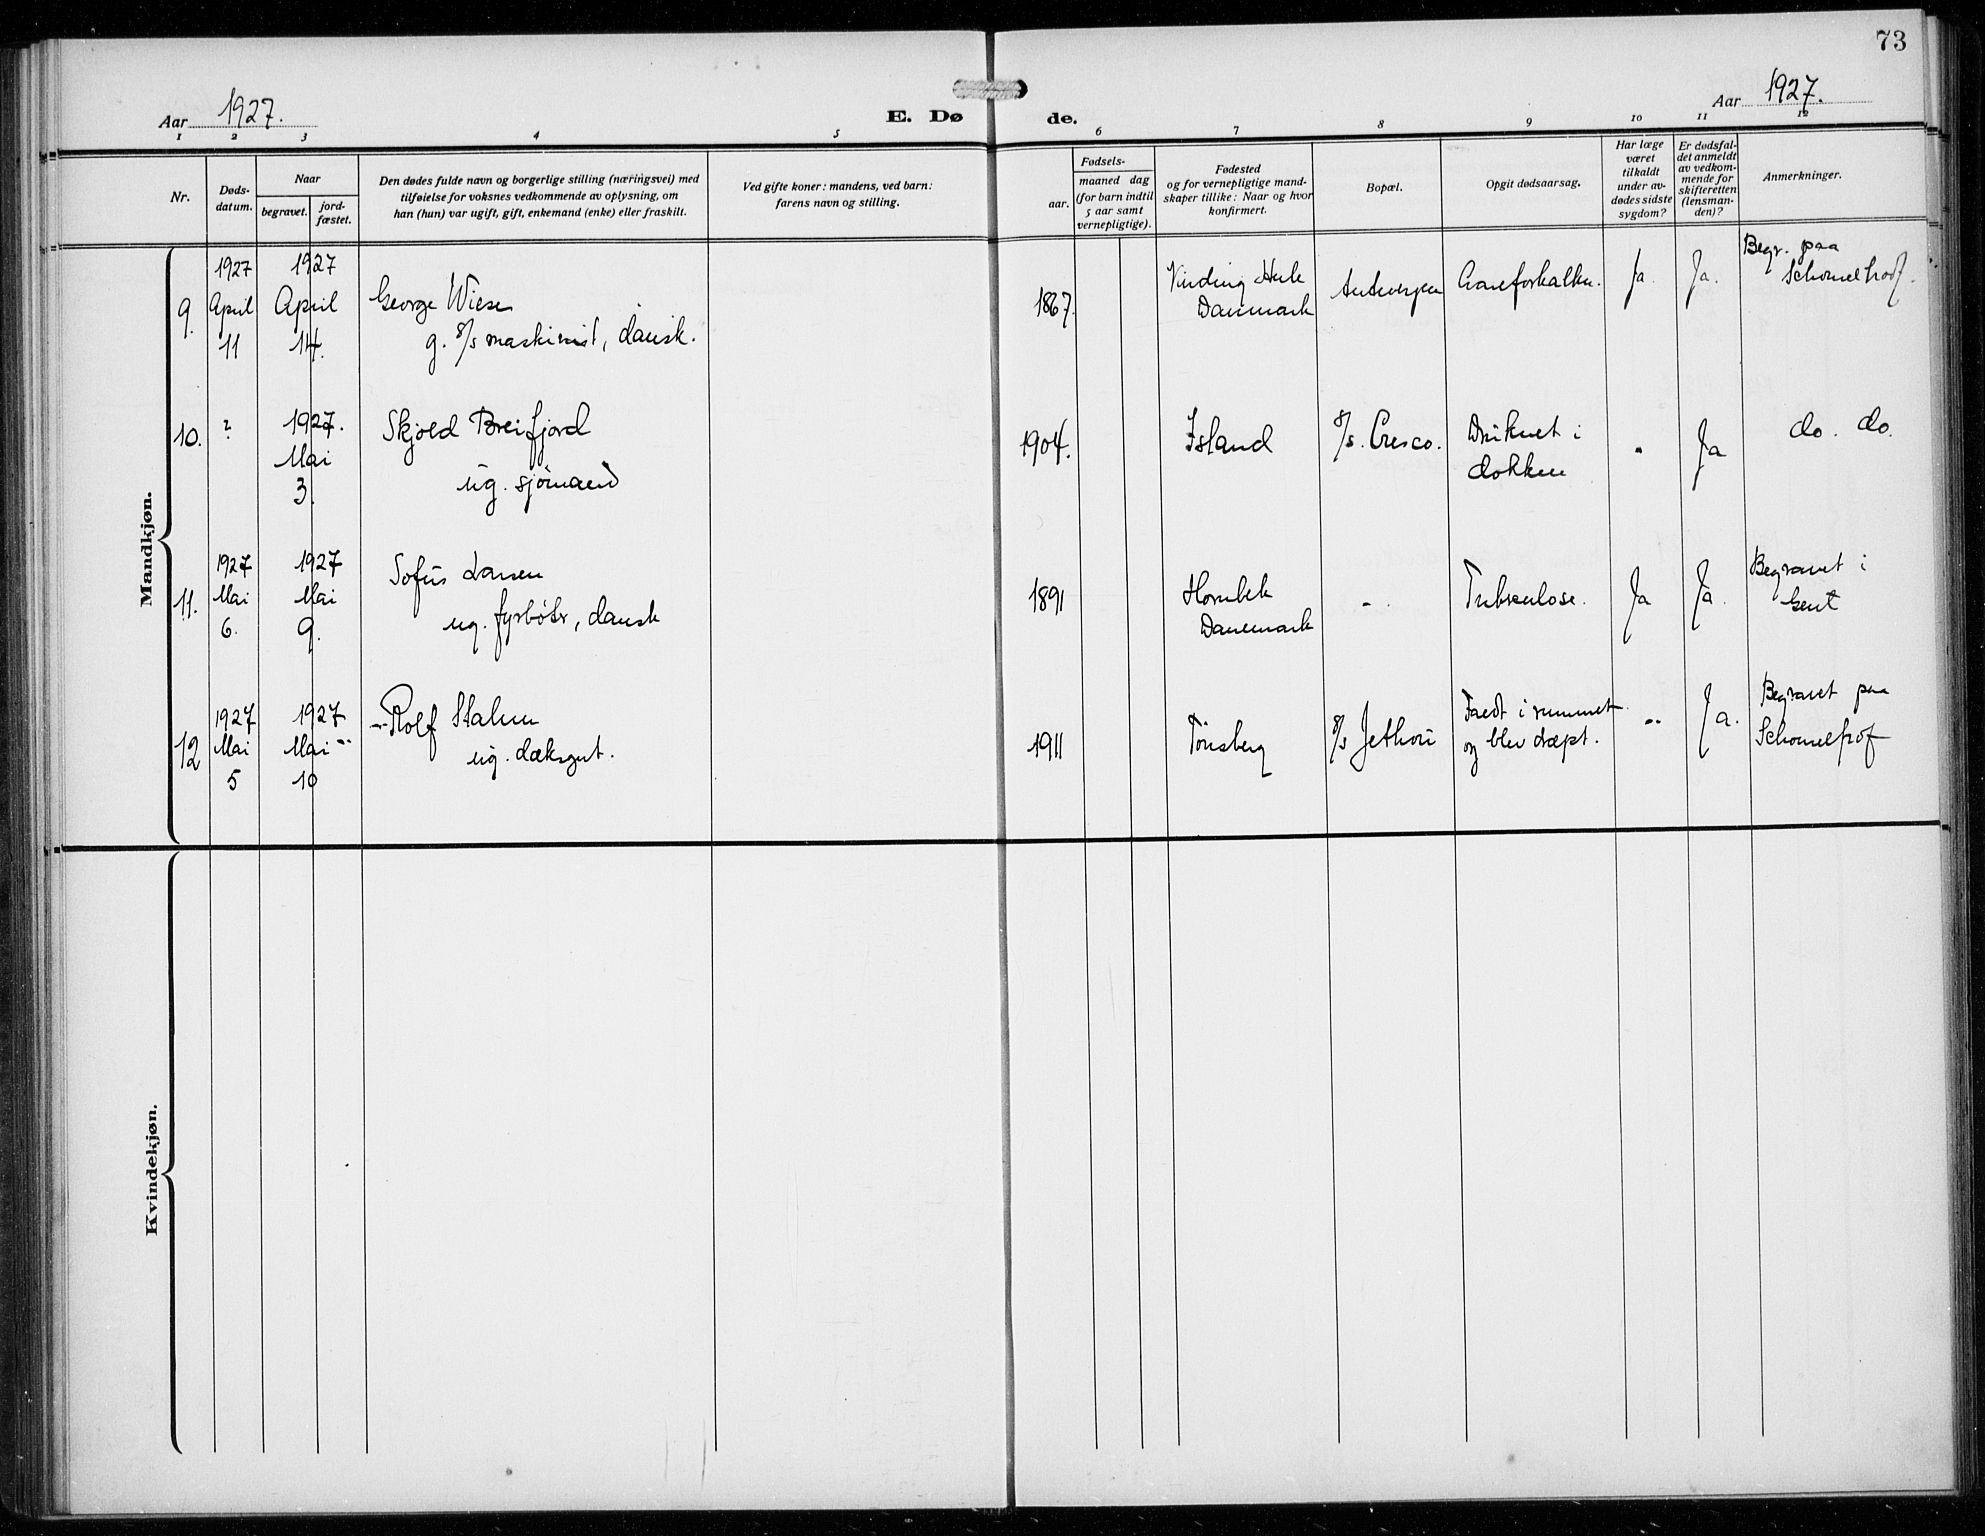 73
Aar 1927.
E. Dø
de.
Aar 1927.
1 2 3 4 5 6 7 8 9 10 11 12
Nr.
Døds-
datum.
Naar
begravet.
jord-
fæstet.
Den dødes fulde navn og borgerlige stilling (næringsvei) med
tilføielse for voksnes vedkommende av oplysning, om
han (hun) var ugift, gift, enkemand (enke) eller fraskilt.
Ved gifte koner: mandens, ved barn:
farens navn og stilling.
Fødsels-
aar.
maaned dag
(for barn indtil
5 aar samt
vernepligtige).
Fødested
og for vernepligtige mand-
skaper tillike: Naar og hvor
konfirmert.
Bopæl.
Opgit dødsaarsag.
Har læge
været
tilkaldt
under av-
dødes sidste
sygdom?
Er dødsfal-
det anmeldt
av vedkom-
mende for
skifteretten
(lensman-
den)?
Anmerkninger.
Mandkjøn.
9.
1927
April
11
1927
April
14.
George Wiese
g. s/s maskinist, dansk.
1867.
Vinding
Danmark
Antwerpen
Aareforkalkn.
Ja.
Ja.
Begr. paa
Schoonselhof.
10.
?
1927.
Mai
3.
Skjold Breifjord
ug. sjømand
1904.
Island
s/s. Cresco.
Druknet i
dokken
"
Ja
do. do.
11.
1927
Mai
6.
1927
Mai
9.
Sofus Larsen
ug. fyrbøter, dansk
1891
Hornbek
Danemark
-.
Tuberkulose.
Ja
Ja.
Begravet i
Gent
12
1927
Mai
5
1927
Mai "
10
Rolf Stalun
ug. dæksgut.
1911
Tønsberg
s/s Jethou
Faldt i rummet
og blev dræpt.
"
Ja.
Begravet paa
Schoonselhof
Kvindekjøn.